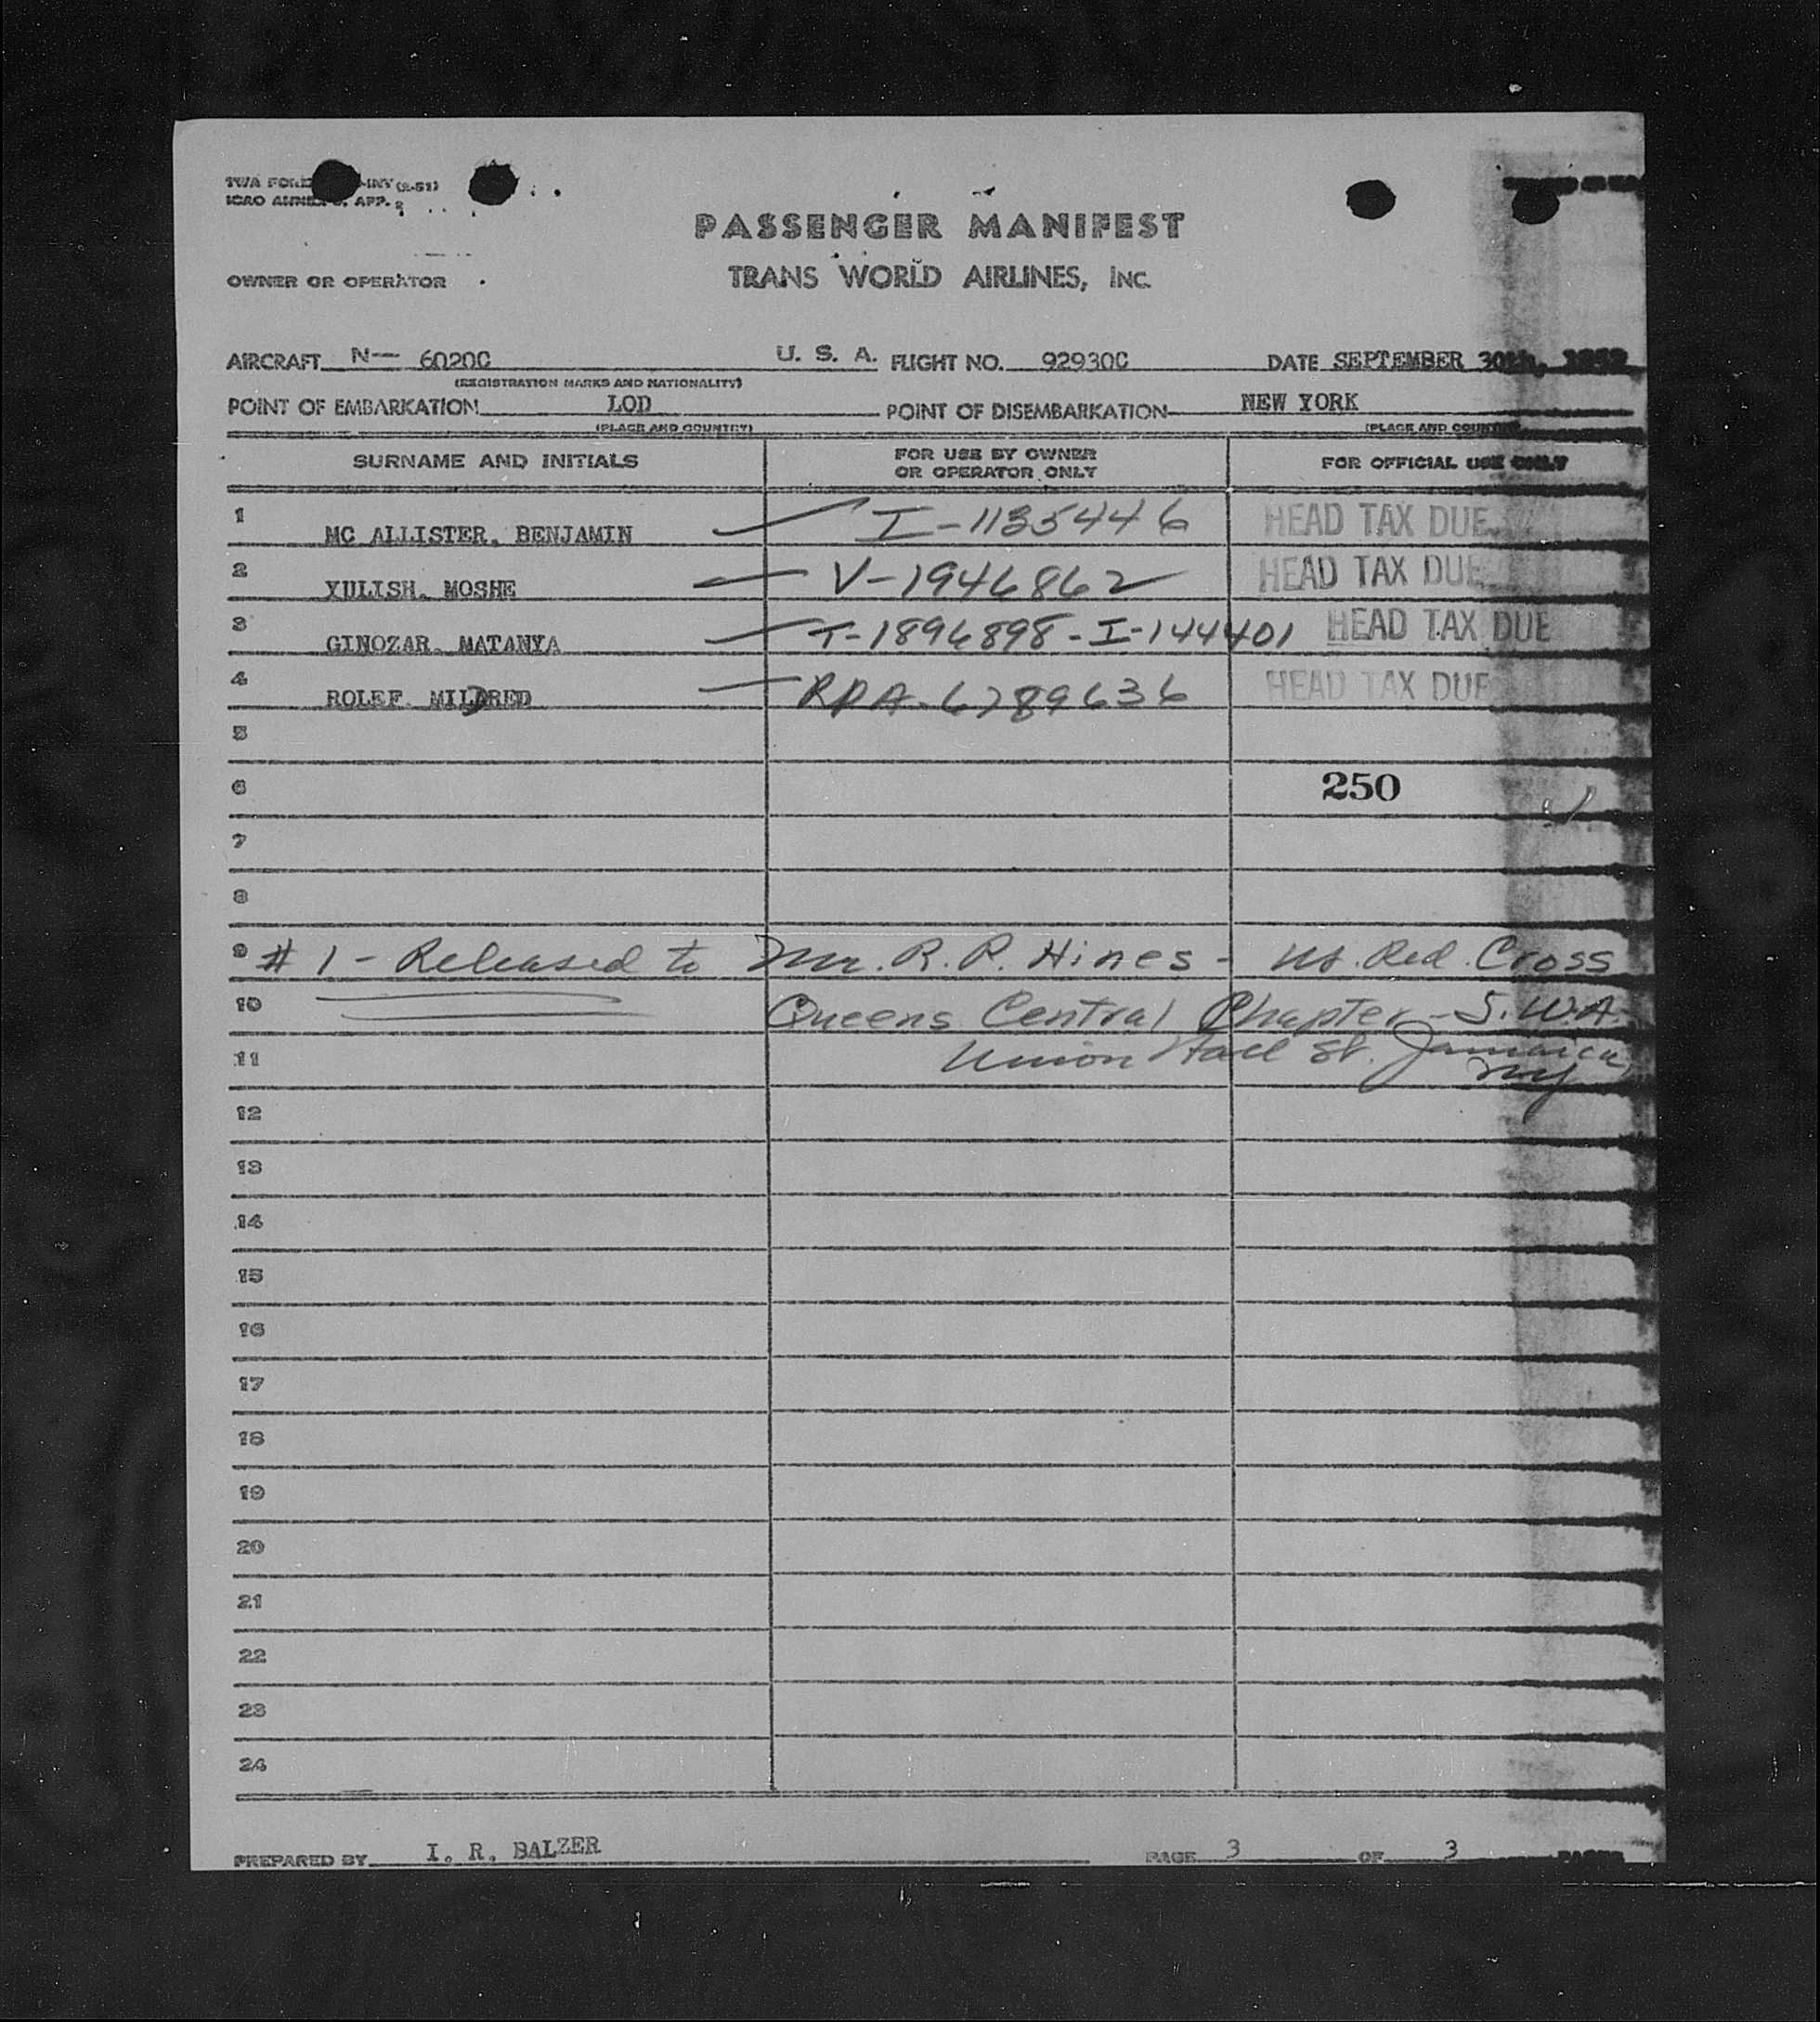 TWA FORM -INY (2-51)
ICAO ANNEX 9, APP. 2
PASSENGER MANIFEST
OWNER OR OPERATOR TRANS WORLD AIRLINES, INC.
AIRCRAFT N-- 6020C U. S. A. FLIGHT NO. 92930C DATE SEPTEMBER 30th,
(REGISTRATION MARKS AND NATIONALITY)
POINT OF EMBARKATION LOD POINT OF DISEMBARKATION NEW YORK
(PLACE AND COUNTRY) (PLACE AND COUNTRY)
SURNAME AND INITIALS FOR USE BY OWNER OR OPERATOR ONLY FOR OFFICIAL USE ONLY
1 MC ALLISTER, BENJAMIN I-1135446 HEAD TAX DUE
2 YULISH, MOSHE V-1946862 HEAD TAX DUE
3 GINOZAR, MATANYA T-1896898-I-144401 HEAD TAX DUE
4 ROLEF, MILDRED RPA-6289636 HEAD TAX DUE
5
6 250
7
8
9 # 1 - Released to Mr. R. P. Hines - US. Red Cross
10 Queens Central Chapter - S.W.A.
11 Union Hall St. Jamaica,
NY
12
13
14
15
16
17
18
19
20
21
22
23
24
PREPARED BY I. R. BALZER PAGE 3 OF 3 PAGES